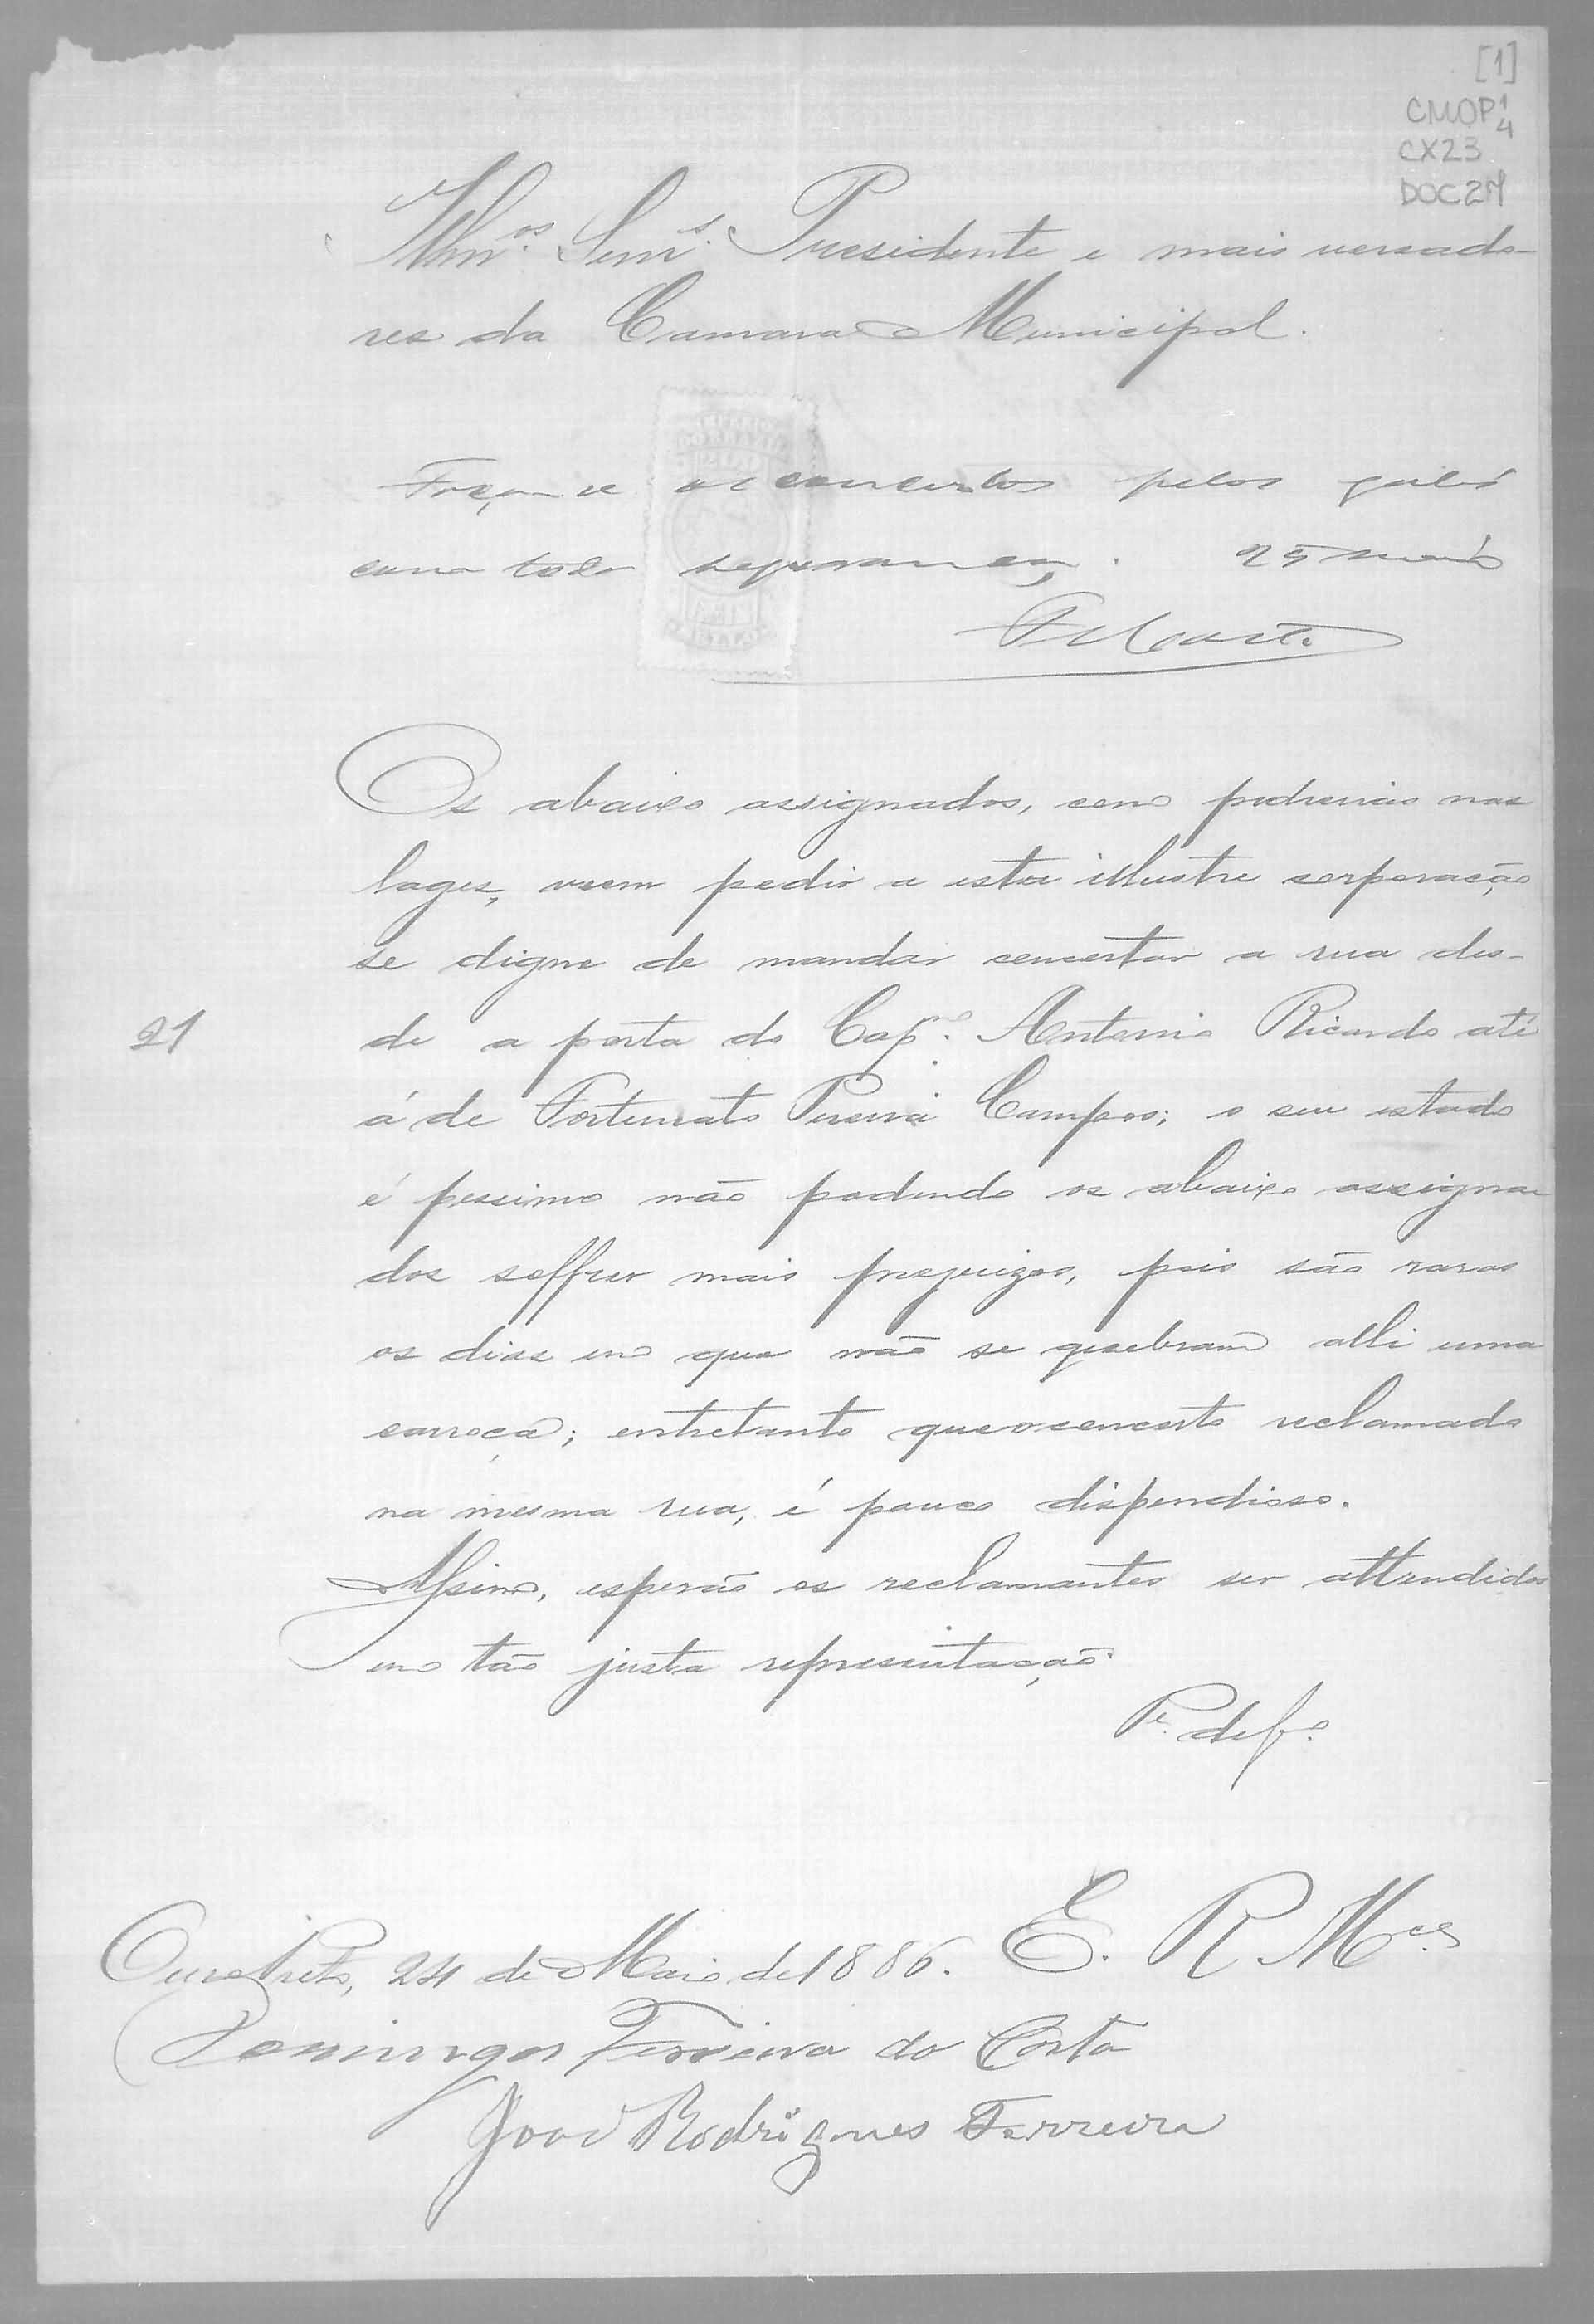 [1]
CMOP 1/4
CX23
DOC 27
Illmos. Senrs. Presidente e mais vereado-
res da Camara Municipal.
Fação se os concertos pelos galés
com toda segurança. 25 maio
Os abaixo assignados, com pedreiras nas
lages, veem pedir a esta illustre corporação
se digne de mandar concertar a rua des-
21
de a porta do Capm. Antonio Ricardo até
á de Fortunato Pereira Campos; o seu estado
é pessimo não podendo os abaixo assigna-
dos soffrer mais prejuizos, pois são raros
os dias em que não se quebram alli uma
carroça; entretanto que o concerto reclamado
na mesma rua, é pouco dispendioso.
Assim, esperão os reclamantes ser attendidos
em tão justa representação.
Pe. defo.
E. R. Mces
Ouro Preto, 24 de Maio de 1886.
Domingos Ferreira da Costa
João Rodrigues Ferreira